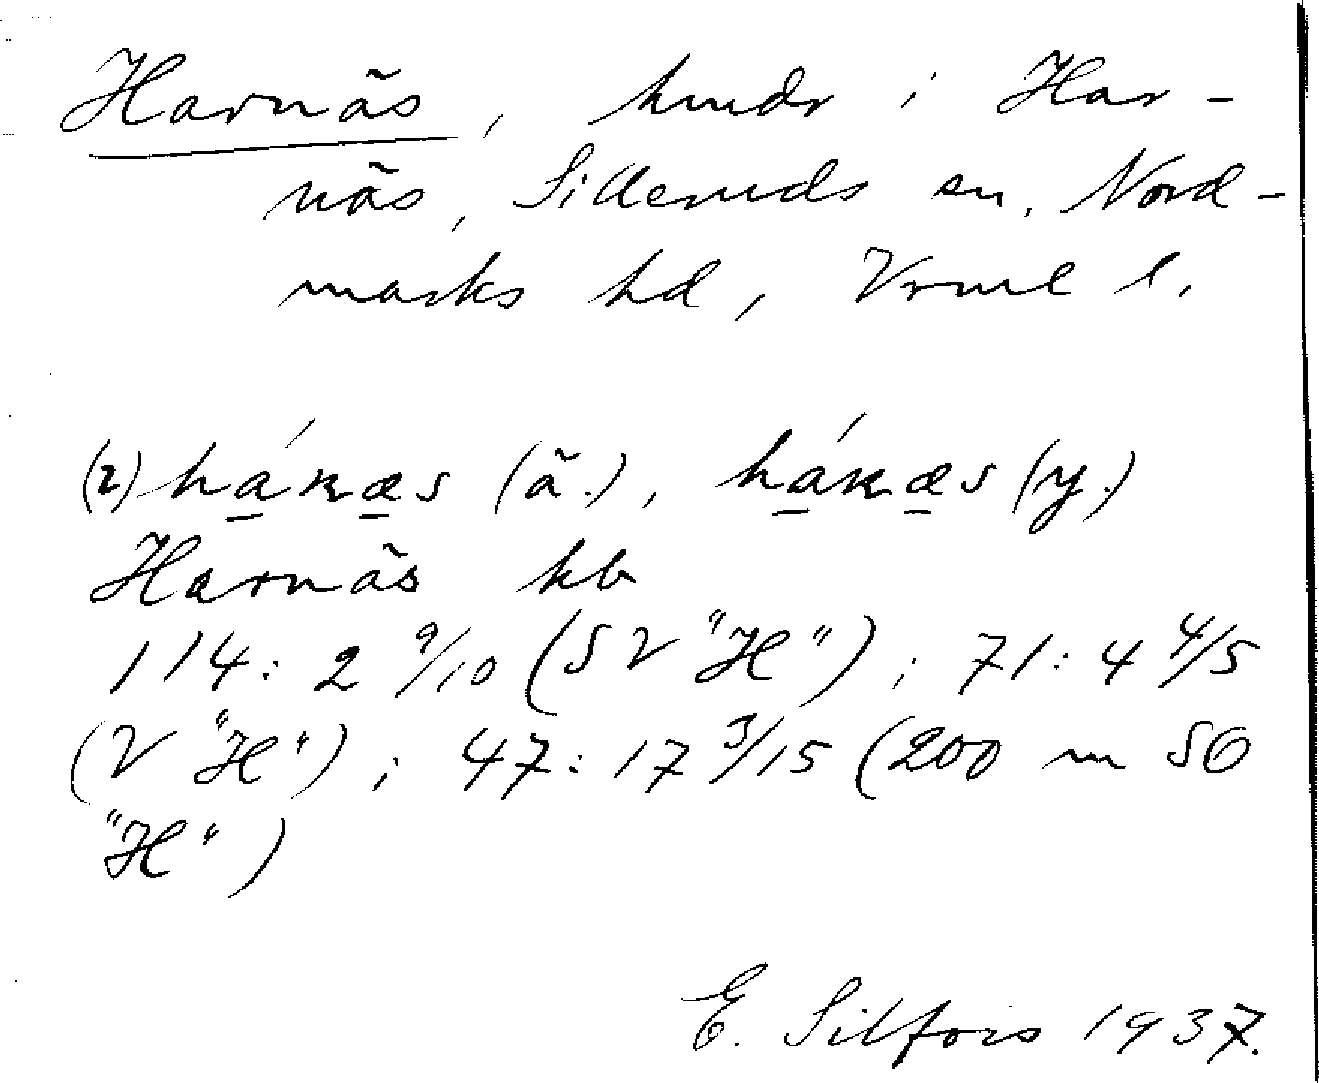 Harnäs, hmdr i Har-
näs, Silleruds sn, Nord-
marks hd, Vrml l.
(2) hánæs (ä.), hánæs (y.)
Harnäs kb
114: 2 9/10 (SV "H"); 71: 4 4/5
(V "H"); 47: 17 3/15 (200 m SO
"H")
E. Silfors 1937.